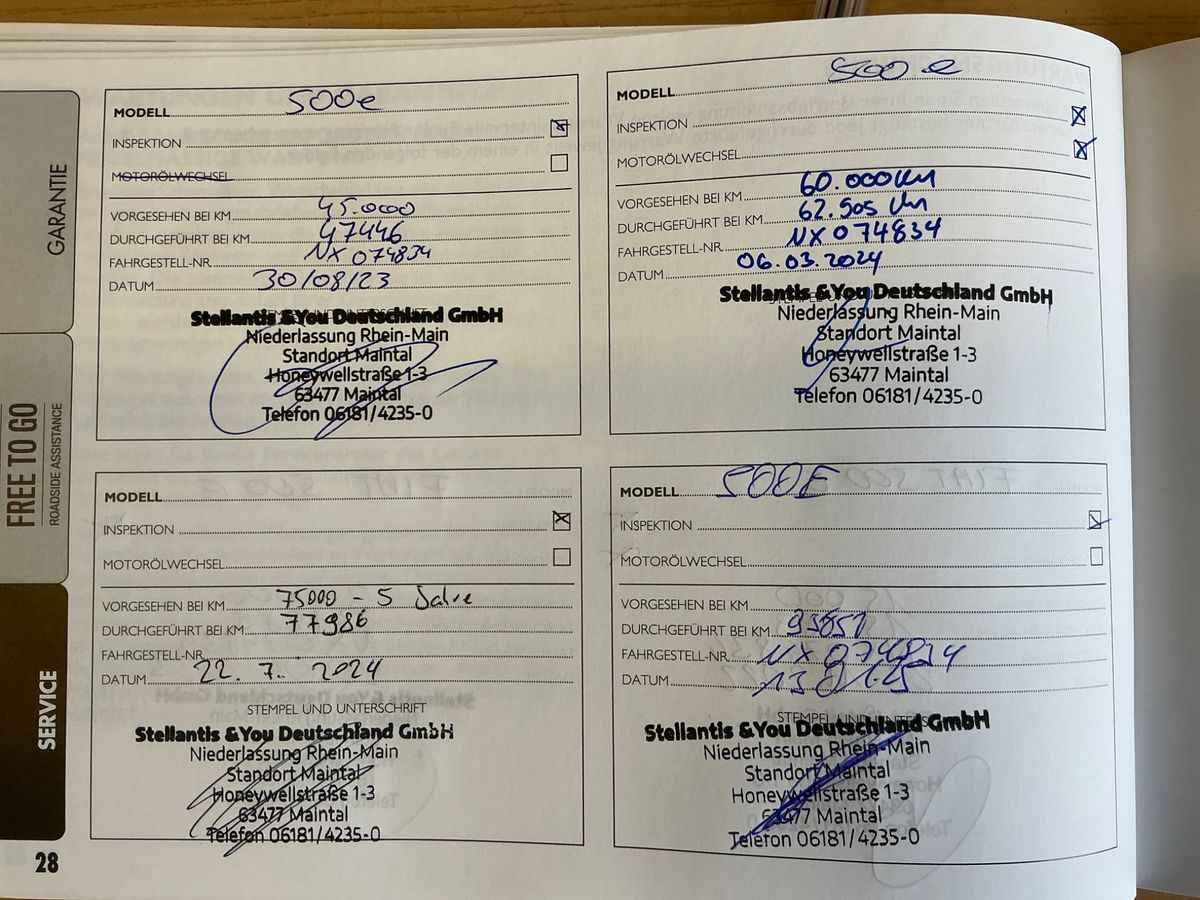 GARANTIE
FREE TO GO
ROADSIDE ASSISTANCE
SERVICE
28
MODELL 500e
INSPEKTION
MOTORÖLWECHSEL
VORGESEHEN BEI KM 45.000
DURCHGEFÜHRT BEI KM 47446
FAHRGESTELL-NR. NX 074834
DATUM 30/08/23
Stellantis &You Deutschland GmbH
Niederlassung Rhein-Main
Standort Maintal
Honeywellstraße 1-3
63477 Maintal
Telefon 06181/4235-0
MODELL 500e
INSPEKTION
MOTORÖLWECHSEL
VORGESEHEN BEI KM 60.000 Km
DURCHGEFÜHRT BEI KM 62.505 Km
FAHRGESTELL-NR. NX 074834
DATUM 06.03.2024
Stellantis &You Deutschland GmbH
Niederlassung Rhein-Main
Standort Maintal
Honeywellstraße 1-3
63477 Maintal
Telefon 06181/4235-0
MODELL
INSPEKTION
MOTORÖLWECHSEL
VORGESEHEN BEI KM 75000 - 5 Jahre
DURCHGEFÜHRT BEI KM 77986
FAHRGESTELL-NR.
DATUM 22. 7. 2024
STEMPEL UND UNTERSCHRIFT
Stellantis &You Deutschland GmbH
Niederlassung Rhein-Main
Standort Maintal
Honeywellstraße 1-3
63477 Maintal
Telefon 06181/4235-0
MODELL 500E
INSPEKTION
MOTORÖLWECHSEL
VORGESEHEN BEI KM
DURCHGEFÜHRT BEI KM 93651
FAHRGESTELL-NR. NX 074834
DATUM 13.01.25
STEMPEL UND UNTERS
Stellantis &You Deutschland GmbH
Niederlassung Rhein-Main
Standort Maintal
Honeywellstraße 1-3
63477 Maintal
Telefon 06181/4235-0